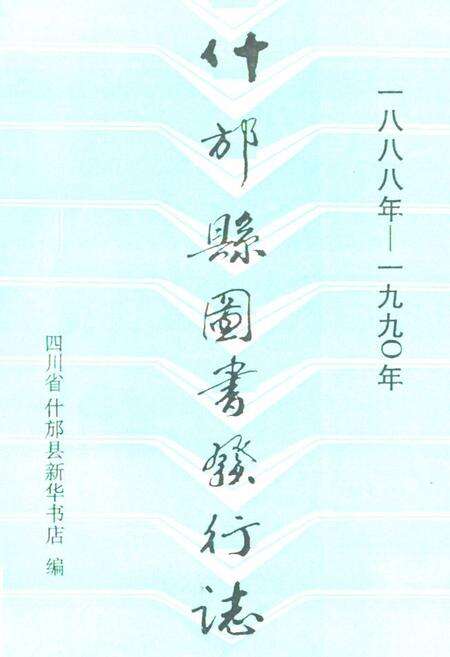 一八八八年—一九九〇年
什邡縣圖書發行誌
四川省什邡县新华书店 编